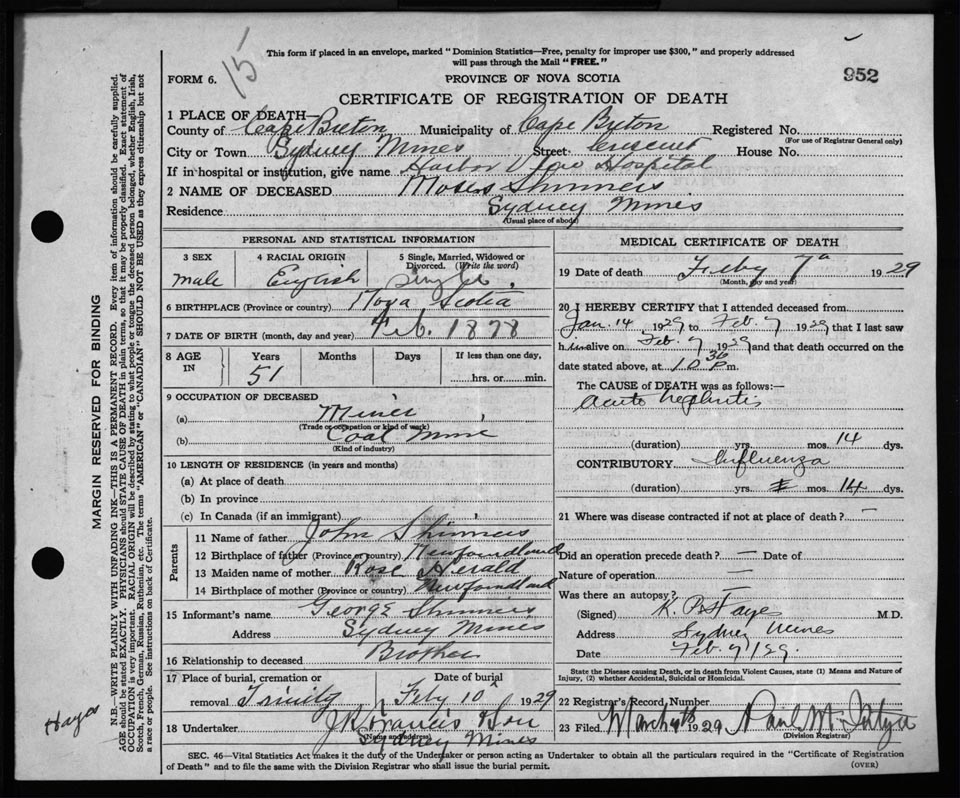 This form if placed in an envelope, marked "Dominion Statistics—Free, penalty for improper use $300," and properly addressed
will pass through the Mail "FREE."
15
952
FORM 6.
PROVINCE OF NOVA SCOTIA
CERTIFICATE OF REGISTRATION OF DEATH
1 PLACE OF DEATH
County of Cape Breton Municipality of Cape Bryton Registered No.
(For use of Registrar General only)
City or Town Sydney Mines Street Crescent House No.
If in hospital or institution, give name Harbor View Hospital
2 NAME OF DECEASED Moses Shinners
Residence Sydney Mines
(Usual place of abode)
PERSONAL AND STATISTICAL INFORMATION
3 SEX 4 RACIAL ORIGIN 5 Single, Married, Widowed or
Divorced. (Write the word)
male English Single.
6 BIRTHPLACE (Province or country) Nova Scotia
7 DATE OF BIRTH (month, day and year) Feb. 1878
8 AGE IN Years Months Days If less than one day,
51 hrs. or min.
9 OCCUPATION OF DECEASED
(a) Miner
(Trade or occupation or kind of work)
(b) Coal Mine
(Kind of industry)
10 LENGTH OF RESIDENCE (in years and months)
(a) At place of death
(b) In province
(c) In Canada (if an immigrant)
Parents
11 Name of father John Shinners
12 Birthplace of father (Province or country) Newfoundland
13 Maiden name of mother Rose Herald
14 Birthplace of mother (Province or country) Newfoundland
15 Informant's name George Shinners
Address Sydney Mines
16 Relationship to deceased Brother
17 Place of burial, cremation or Date of burial
removal Trinity Feby 10 1929
18 Undertaker J R Francis & Son
(Name and address)
Sydney Mines
MEDICAL CERTIFICATE OF DEATH
19 Date of death Feby 7th 1929
(Month, day and year)
20 I HEREBY CERTIFY that I attended deceased from
Jan. 14, 1929 to Feb. 7 1929 that I last saw
him alive on Feb. 7 1929 and that death occurred on the
date stated above, at 10 30 P m.
The CAUSE of DEATH was as follows:—
Acute Nephritis
(duration) yrs. mos. 14 dys.
CONTRIBUTORY Influenza
(duration) yrs. mos. 14 dys.
21 Where was disease contracted if not at place of death? —
Did an operation precede death? — Date of
Nature of operation —
Was there an autopsy? —
(Signed) M D.
Address Sydney Mines
Date Feb. 9/29.
State the Disease causing Death, or in death from Violent Causes, state (1) Means and Nature of
Injury, (2) whether Accidental, Suicidal or Homicidal.
22 Registrar's Record, Number
23 Filed March 1929
(Division Registrar)
SEC. 46—Vital Statistics Act makes it the duty of the Undertaker or person acting as Undertaker to obtain all the particulars required in the "Certificate of Registration
of Death" and to file the same with the Division Registrar who shall issue the burial permit.
(OVER)
MARGIN RESERVED FOR BINDING
N.B.—WRITE PLAINLY WITH UNFADING INK—THIS IS A PERMANENT RECORD. Every item of information should be carefully supplied.
AGE should be stated EXACTLY. PHYSICIANS should STATE CAUSE OF DEATH in plain terms, so that it may be properly classified. Exact statement of
OCCUPATION is very important. RACIAL ORIGIN will be described by stating to what people or tongue the deceased person belonged, whether English, Irish,
Scotch, French, German, Russian, Ruthenian, etc. The terms "AMERICAN" or "CANADIAN" SHOULD NOT BE USED as they express citizenship but not
a race or people. See instructions on back of Certificate.